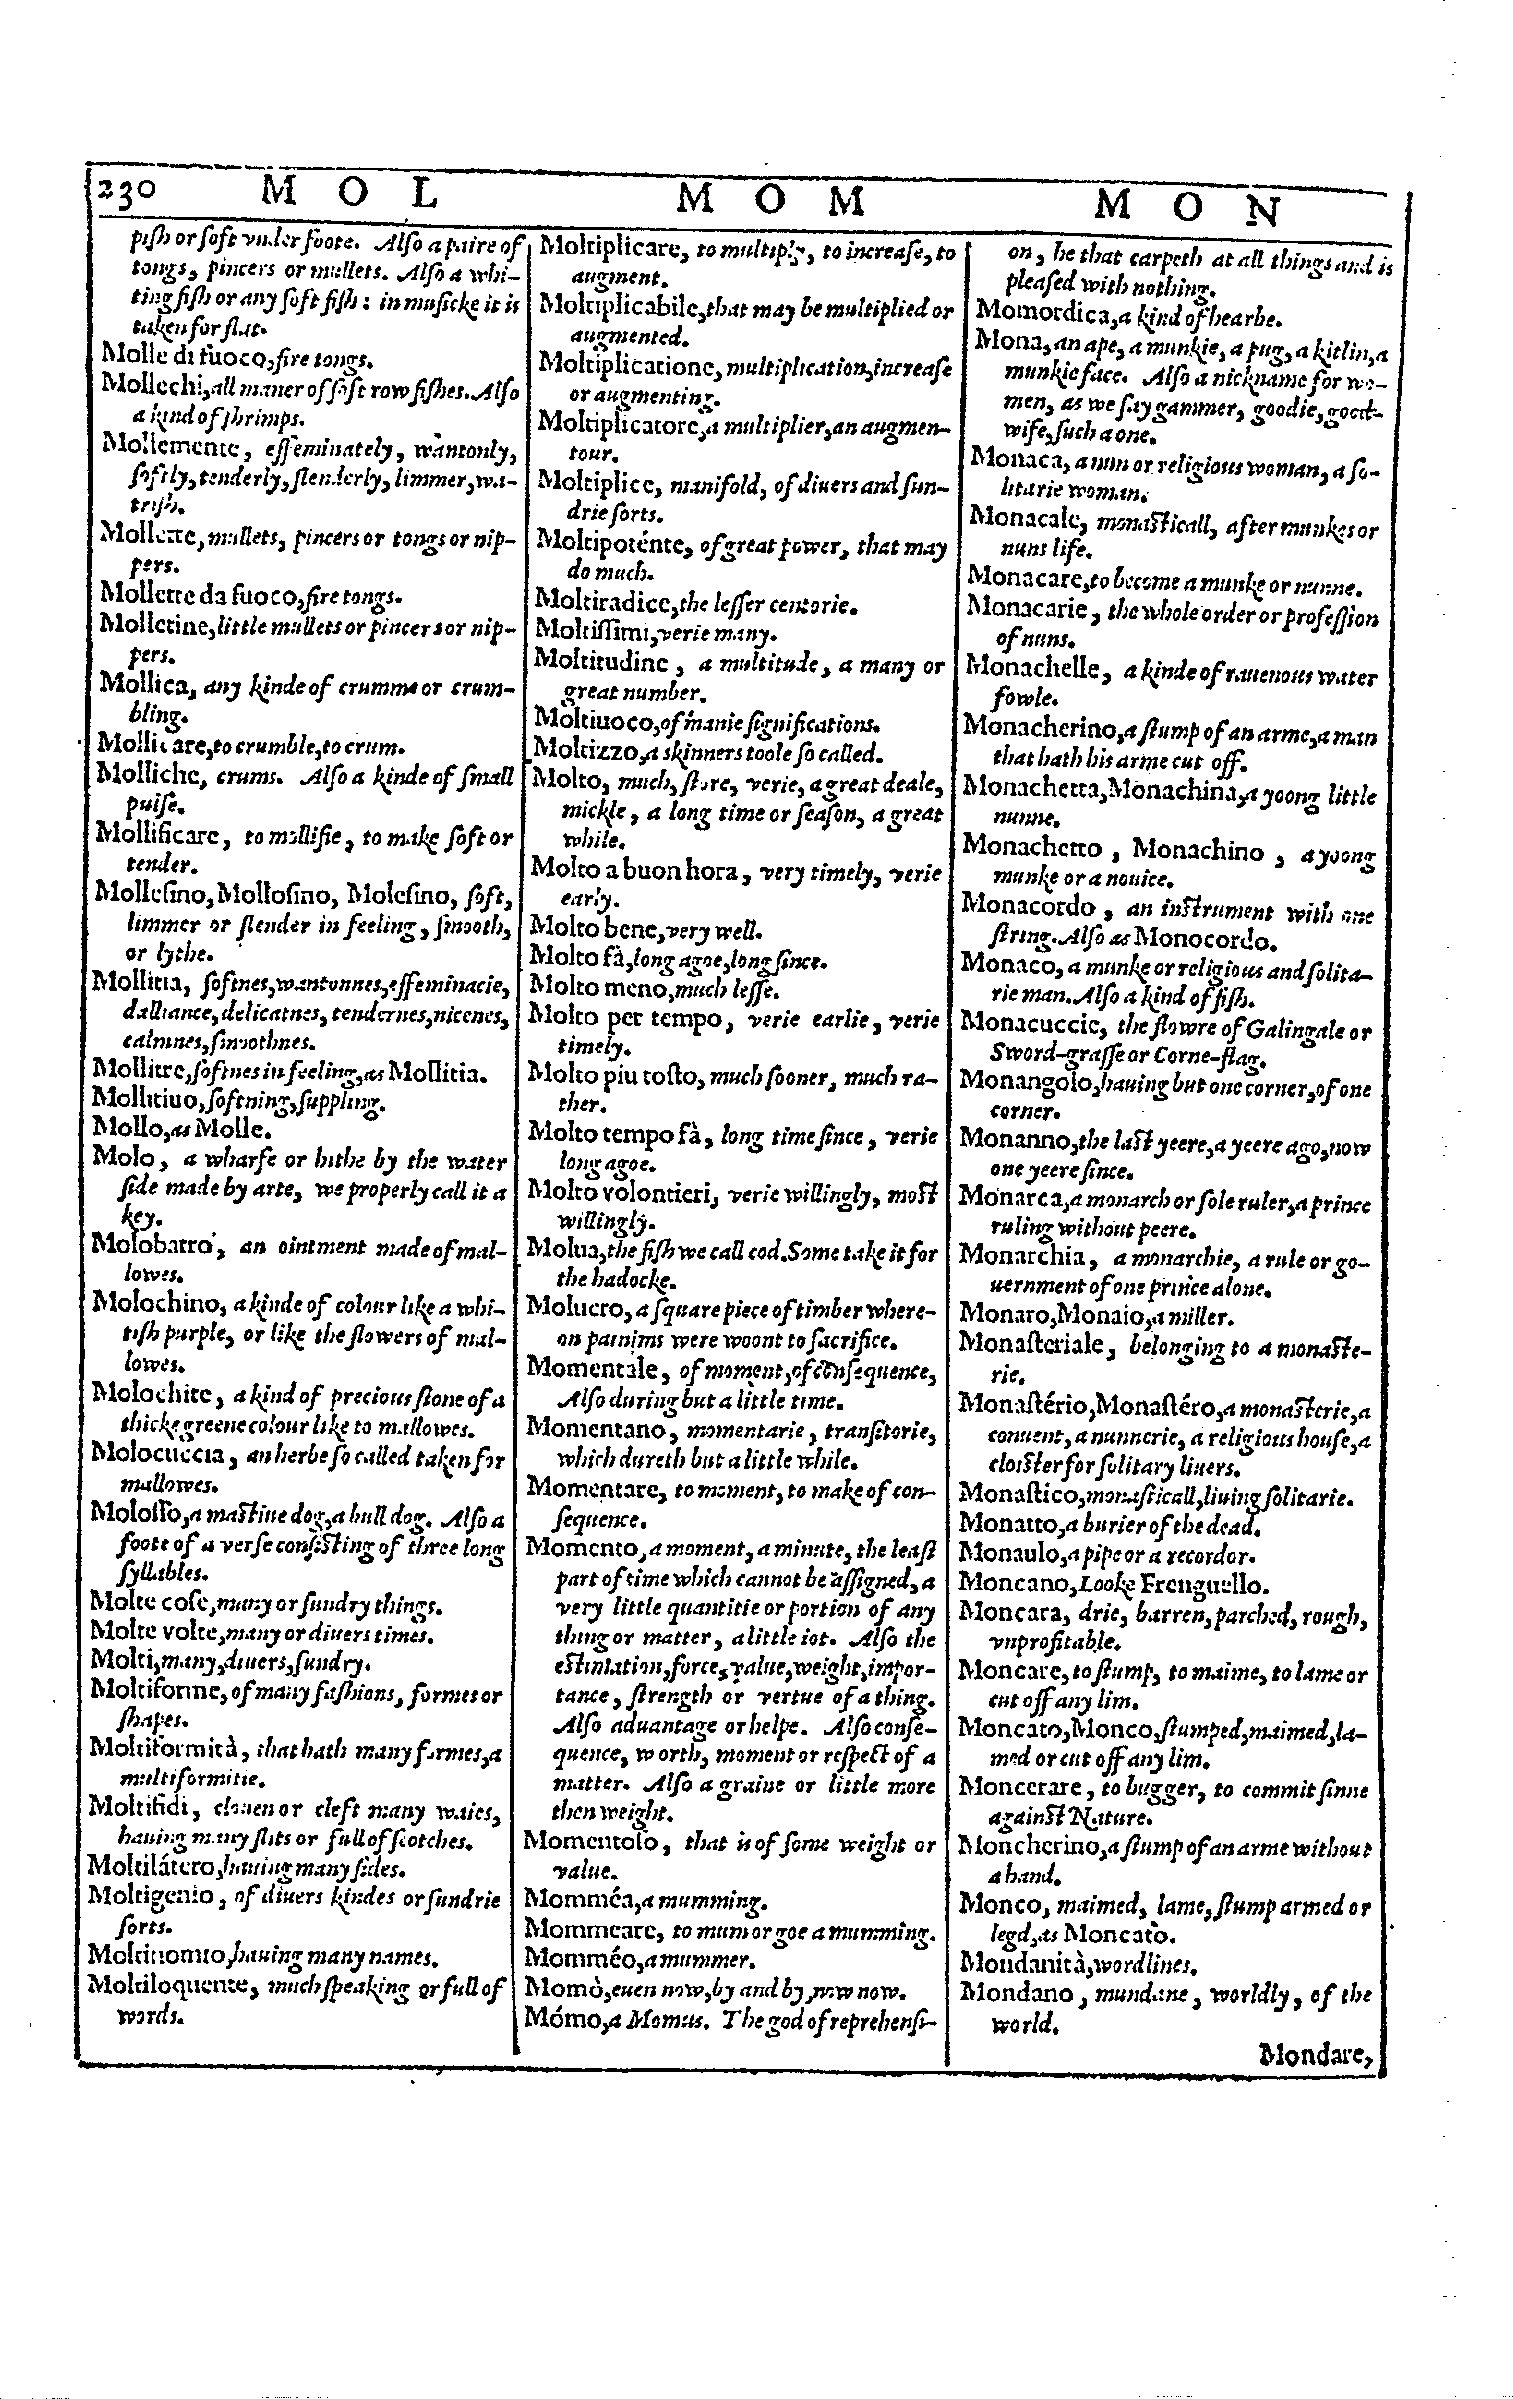 230 M O L M O M M O N
piſh or ſoft vnder foote. Alſo a paire of
tongs, pincers or mullets. Alſo a whi-
ting fiſh or any ſoft fiſh: in muſicke it is
taken for flat.
Molle di fuoco, fire tongs.
Mollechi, all maner of ſoft row fiſhes. Alſo
a kind of ſhrimps.
Mollemente, effeminately, wantonly,
ſoftly, tenderly, ſlenderly, limmer, wa-
triſh.
Mollette, mullets, pincers or tongs or nip-
pers.
Mollette da fuoco, fire tongs.
Molletine, little mullets or pincers or nip-
pers.
Mollica, any kinde of crumme or crum-
bling.
Mollicare, to crumble, to crum.
Molliche, crums. Alſo a kinde of ſmall
pulſe.
Mollificare, to mollifie, to make ſoft or
tender.
Molleſino, Molloſino, Moleſino, ſoft,
limmer or ſlender in feeling, ſmooth,
or lythe.
Mollitia, ſoftnes, wantonnes, effeminacie,
dalliance, delicatnes, tendernes, nicenes,
calmnes, ſmoothnes.
Mollitre, ſoftnes in feeling, as Mollitia.
Mollitiuo, ſoftning, ſuppling.
Mollo, as Molle.
Molo, a wharfe or hithe by the water
ſide made by arte, we properly call it a
key.
Molobatro, an ointment made of mal-
lowes.
Molochino, a kinde of colour like a whi-
tiſh purple, or like the flowers of mal-
lowes.
Molochite, a kind of precious ſtone of a
thicke greene colour like to mallowes.
Molocuccia, an herbe ſo called taken for
mallowes.
Moloſſo, a maſtiue dog, a bull dog. Alſo a
foote of a verſe conſiſting of three long
ſyllables.
Molte coſe, many or ſundry things.
Molte volte, many or diuers times.
Molti, many, diuers, ſundry.
Moltiforme, of many faſhions, formes or
ſhapes.
Moltiformità, that hath many formes, a
multiformitie.
Moltifidi, clouen or cleft many waies,
hauing many ſlits or full of ſcotches.
Moltilátero, hauing many ſides.
Moltigenio, of diuers kindes or ſundrie
ſorts.
Moltinomio, hauing many names.
Moltiloquente, much ſpeaking or full of
words.
Moltiplicare, to multiply, to increaſe, to
augment.
Moltiplicabile, that may be multiplied or
augmented.
Moltiplicatione, multiplication, increaſe
or augmenting.
Moltiplicatore, a multiplier, an augmen-
tour.
Moltiplice, manifold, of diuers and ſun-
drie ſorts.
Moltipoténte, of great power, that may
do much.
Moltiradice, the leſſer centorie.
Moltiſſimi, verie many.
Moltitudine, a multitude, a many or
great number.
Moltiuoco, of manie ſignifications.
Moltizzo, a skinners toole ſo called.
Molto, much, ſtore, verie, a great deale,
mickle, a long time or ſeaſon, a great
while.
Molto a buon hora, very timely, verie
early.
Molto bene, very well.
Molto fà, long agoe, long ſince.
Molto meno, much leſſe.
Molto per tempo, verie earlie, verie
timely.
Molto piu toſto, much ſooner, much ra-
ther.
Molto tempo fà, long time ſince, verie
long agoe.
Molto volontieri, verie willingly, moſt
willingly.
Molua, the fiſh we call cod. Some take it for
the hadocke.
Molucro, a ſquare piece of timber where-
on painims were woont to ſacrifice.
Momentale, of moment, of conſequence,
Alſo during but a little time.
Momentano, momentarie, tranſitorie,
which dureth but a little while.
Momentare, to moment, to make of con-
ſequence.
Momento, a moment, a minute, the leaſt
part of time which cannot be aſſigned, a
very little quantitie or portion of any
thing or matter, a little iot. Alſo the
eſtimation, force, value, weight, impor-
tance, ſtrength or vertue of a thing.
Alſo aduantage or helpe. Alſo conſe-
quence, worth, moment or reſpect of a
matter. Alſo a graine or little more
then weight.
Momentoſo, that is of ſome weight or
value.
Momméa, a mumming.
Mommeare, to mum or goe a mumming.
Momméo, a mummer.
Momò, euen now, by and by, now now.
Mómo, a Momus. The god of reprehenſi-
on, he that carpeth at all things and is
pleaſed with nothing.
Momordica, a kind of hearbe.
Mona, an ape, a munkie, a pug, a kitlin, a
munkie face. Alſo a nickname for wo-
men, as we ſay gammer, goodie, good-
wife, ſuch a one.
Monaca, a nun or religious woman, a ſo-
litarie woman.
Monacale, monaſticall, after munkes or
nuns life.
Monacare, to become a munke or nunne.
Monacarie, the whole order or profeſſion
of nuns.
Monachelle, a kinde of rauenous water
fowle.
Monacherino, a ſtump of an arme, a man
that hath his arme cut off.
Monachetta, Monachina, a yoong little
nunne.
Monachetto, Monachino, a yoong
munke or a nouice.
Monacordo, an inſtrument with one
ſtring. Alſo as Monocordo.
Monaco, a munke or religious and ſolita-
rie man. Alſo a kind of fiſh.
Monacuccie, the flowre of Galingale or
Sword-graſſe or Corne-flag.
Monangolo, hauing but one corner, of one
corner.
Monanno, the laſt yeere, a yeere ago, now
one yeere ſince.
Monarca, a monarch or ſole ruler, a prince
ruling without peere.
Monarchia, a monarchie, a rule or go-
uernment of one prince alone.
Monaro, Monaio, a miller.
Monaſteriale, belonging to a monaſte-
rie.
Monaſtério, Monaſtéro, a monaſterie, a
conuent, a nunnerie, a religious houſe, a
cloiſter for ſolitary liuers.
Monaſtico, monaſticall, liuing ſolitarie.
Monatto, a burier of the dead.
Monaulo, a pipe or a recordor.
Moncano, Looke Frenguello.
Moncara, drie, barren, parched, rough,
vnprofitable.
Moncare, to ſtump, to maime, to lame or
cut off any lim.
Moncato, Monco, ſtumped, maimed, la-
med or cut off any lim.
Moncerare, to bugger, to commit ſinne
againſt Nature.
Moncherino, a ſtump of an arme without
a hand.
Monco, maimed, lame, ſtump armed or
legd, as Moncato.
Mondanità, wordlines.
Mondano, mundane, worldly, of the
world.
Mondare,